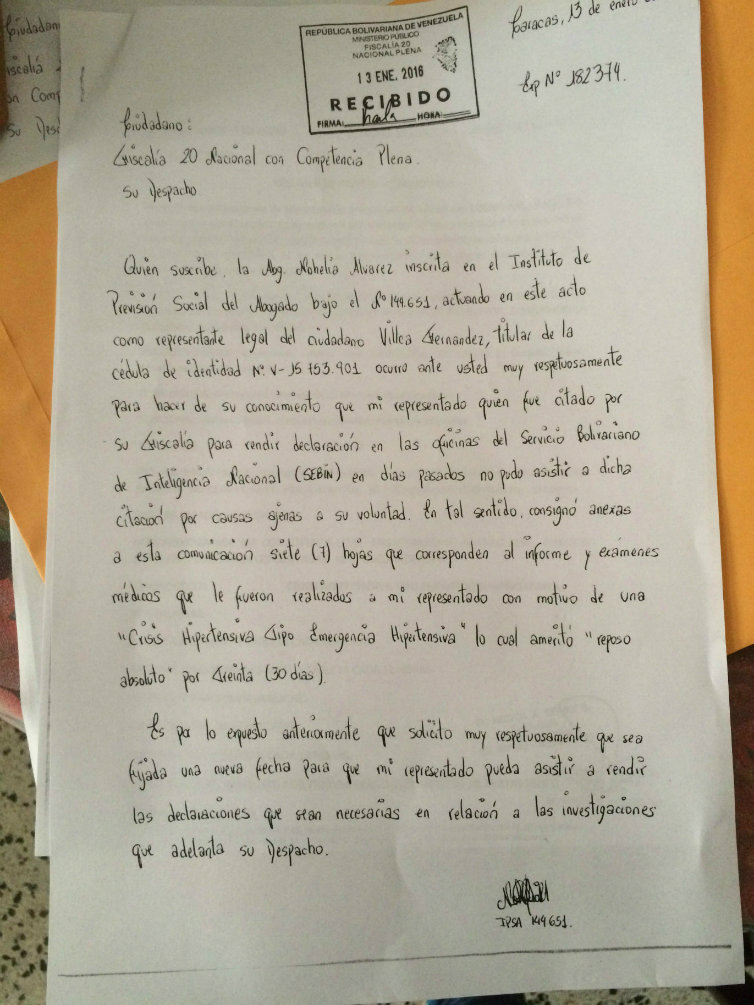 Ciudadano
Fiscalía
con Comp
Su Des
REPÚBLICA BOLIVARIANA DE VENEZUELA
MINISTERIO PÚBLICO
FISCALÍA 20
NACIONAL PLENA
13 ENE. 2016
RECIBIDO
FIRMA: HORA:
Caracas, 13 de enero
Exp Nº 182374.
Ciudadano:
Fiscalía 20 Nacional con Competencia Plena.
Su Despacho
Quién suscribe, la Abg. Nohelia Alvarez inscrita en el Instituto de
Previsión Social del Abogado bajo el Nº 149.651, actuando en este acto
como representante legal del ciudadano Villca Fernandez, titular de la
cédula de identidad Nº. V-15 753.901 ocurro ante usted muy respetuosamente
para hacer de su conocimiento que mi representado quién fue citado por
su Fiscalía para rendir declaración en las oficinas del Servicio Bolivariano
de Inteligencia Nacional (SEBIN) en días pasados no pudo asistir a dicha
citación por causas ajenas a su voluntad. En tal sentido, consignó anexas
a esta comunicación siete (7) hojas que corresponden al informe y exámenes
médicos que le fueron realizados a mi representado con motivo de una
"Crisis Hipertensiva Tipo Emergencia Hipertensiva" lo cual ameritó "reposo
absoluto" por treinta (30 días)
Es por lo expuesto anteriormente que solicito muy respetuosamente que sea
fijada una nueva fecha para que mi representado pueda asistir a rendir
las declaraciones que sean necesarias en relación a las investigaciones
que adelanta su Despacho.
IPSA 149651.